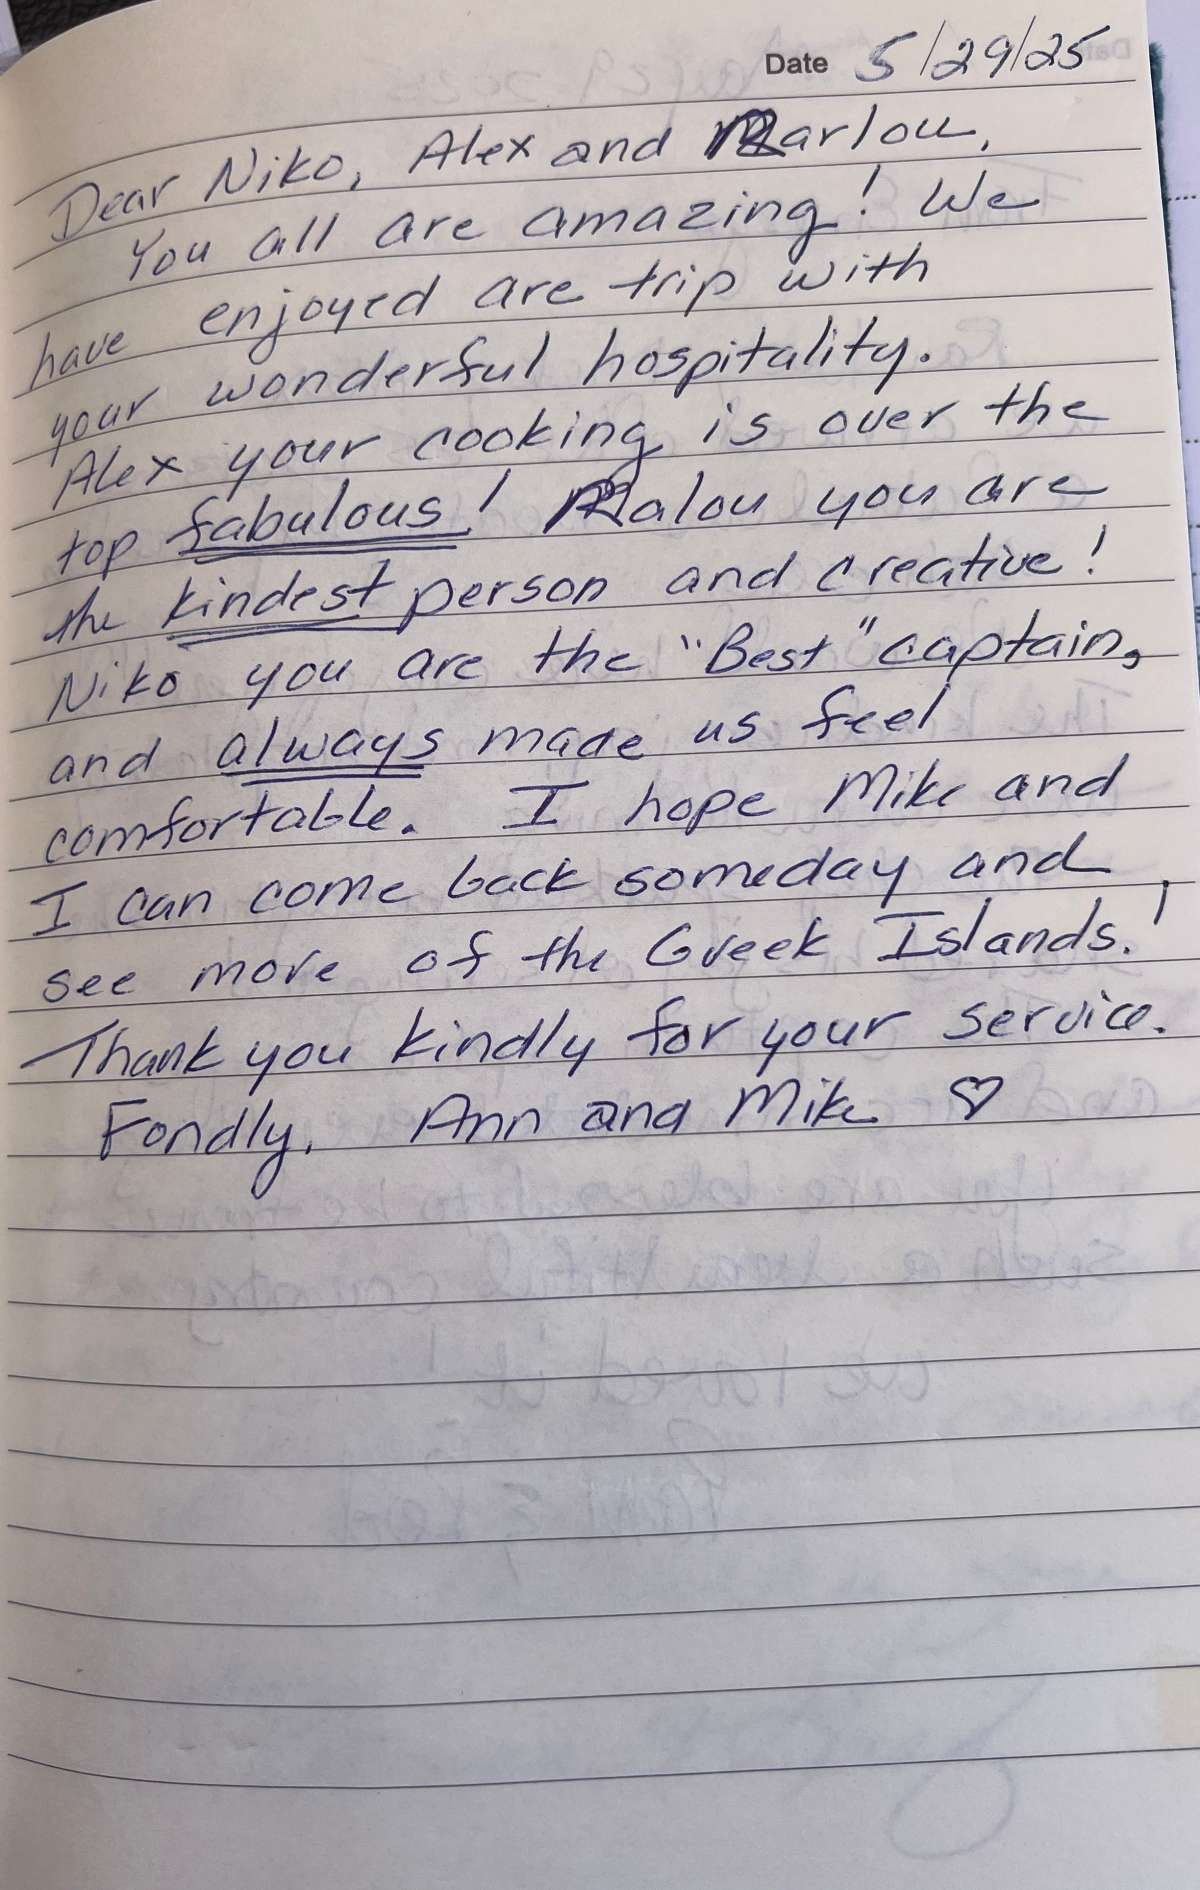 Date 5/29/25
Dear Niko, Alex and Marlou,
You all are amazing! We
have enjoyed are trip with
your wonderful hospitality.
Alex your cooking is over the
top fabulous! Malou you are
the kindest person and creative!
Niko you are the "Best" captain,
and always made us feel
comfortable. I hope Mike and
I can come back someday and
see more of the Greek Islands!
Thank you kindly for your service.
Fondly, Ann and Mike ♡